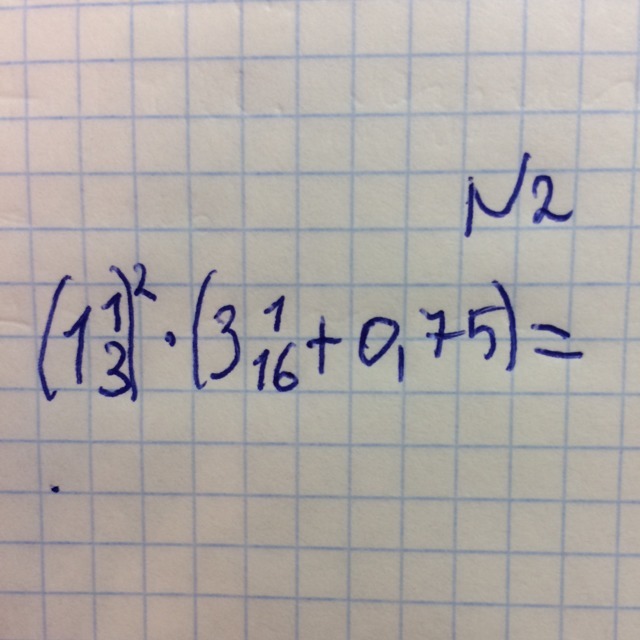 N2
(1 1/3)² · (3 1/16 + 0,75) =